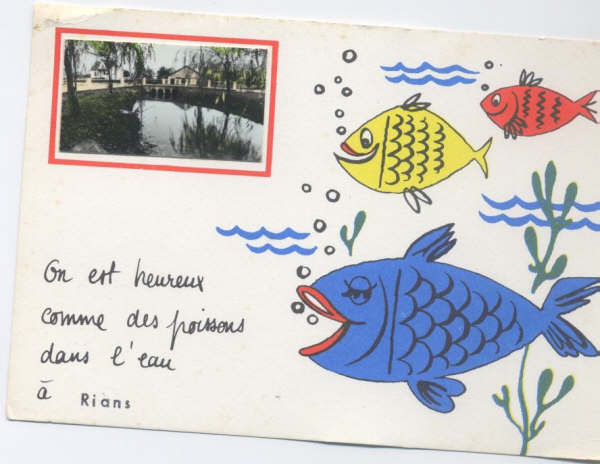 On est heureux
comme des poissons
dans l'eau
à Rians